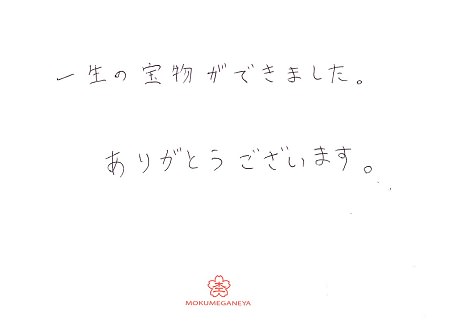 一生の宝物ができました。
ありがとうございます。
杢
MOKUMEGANEYA